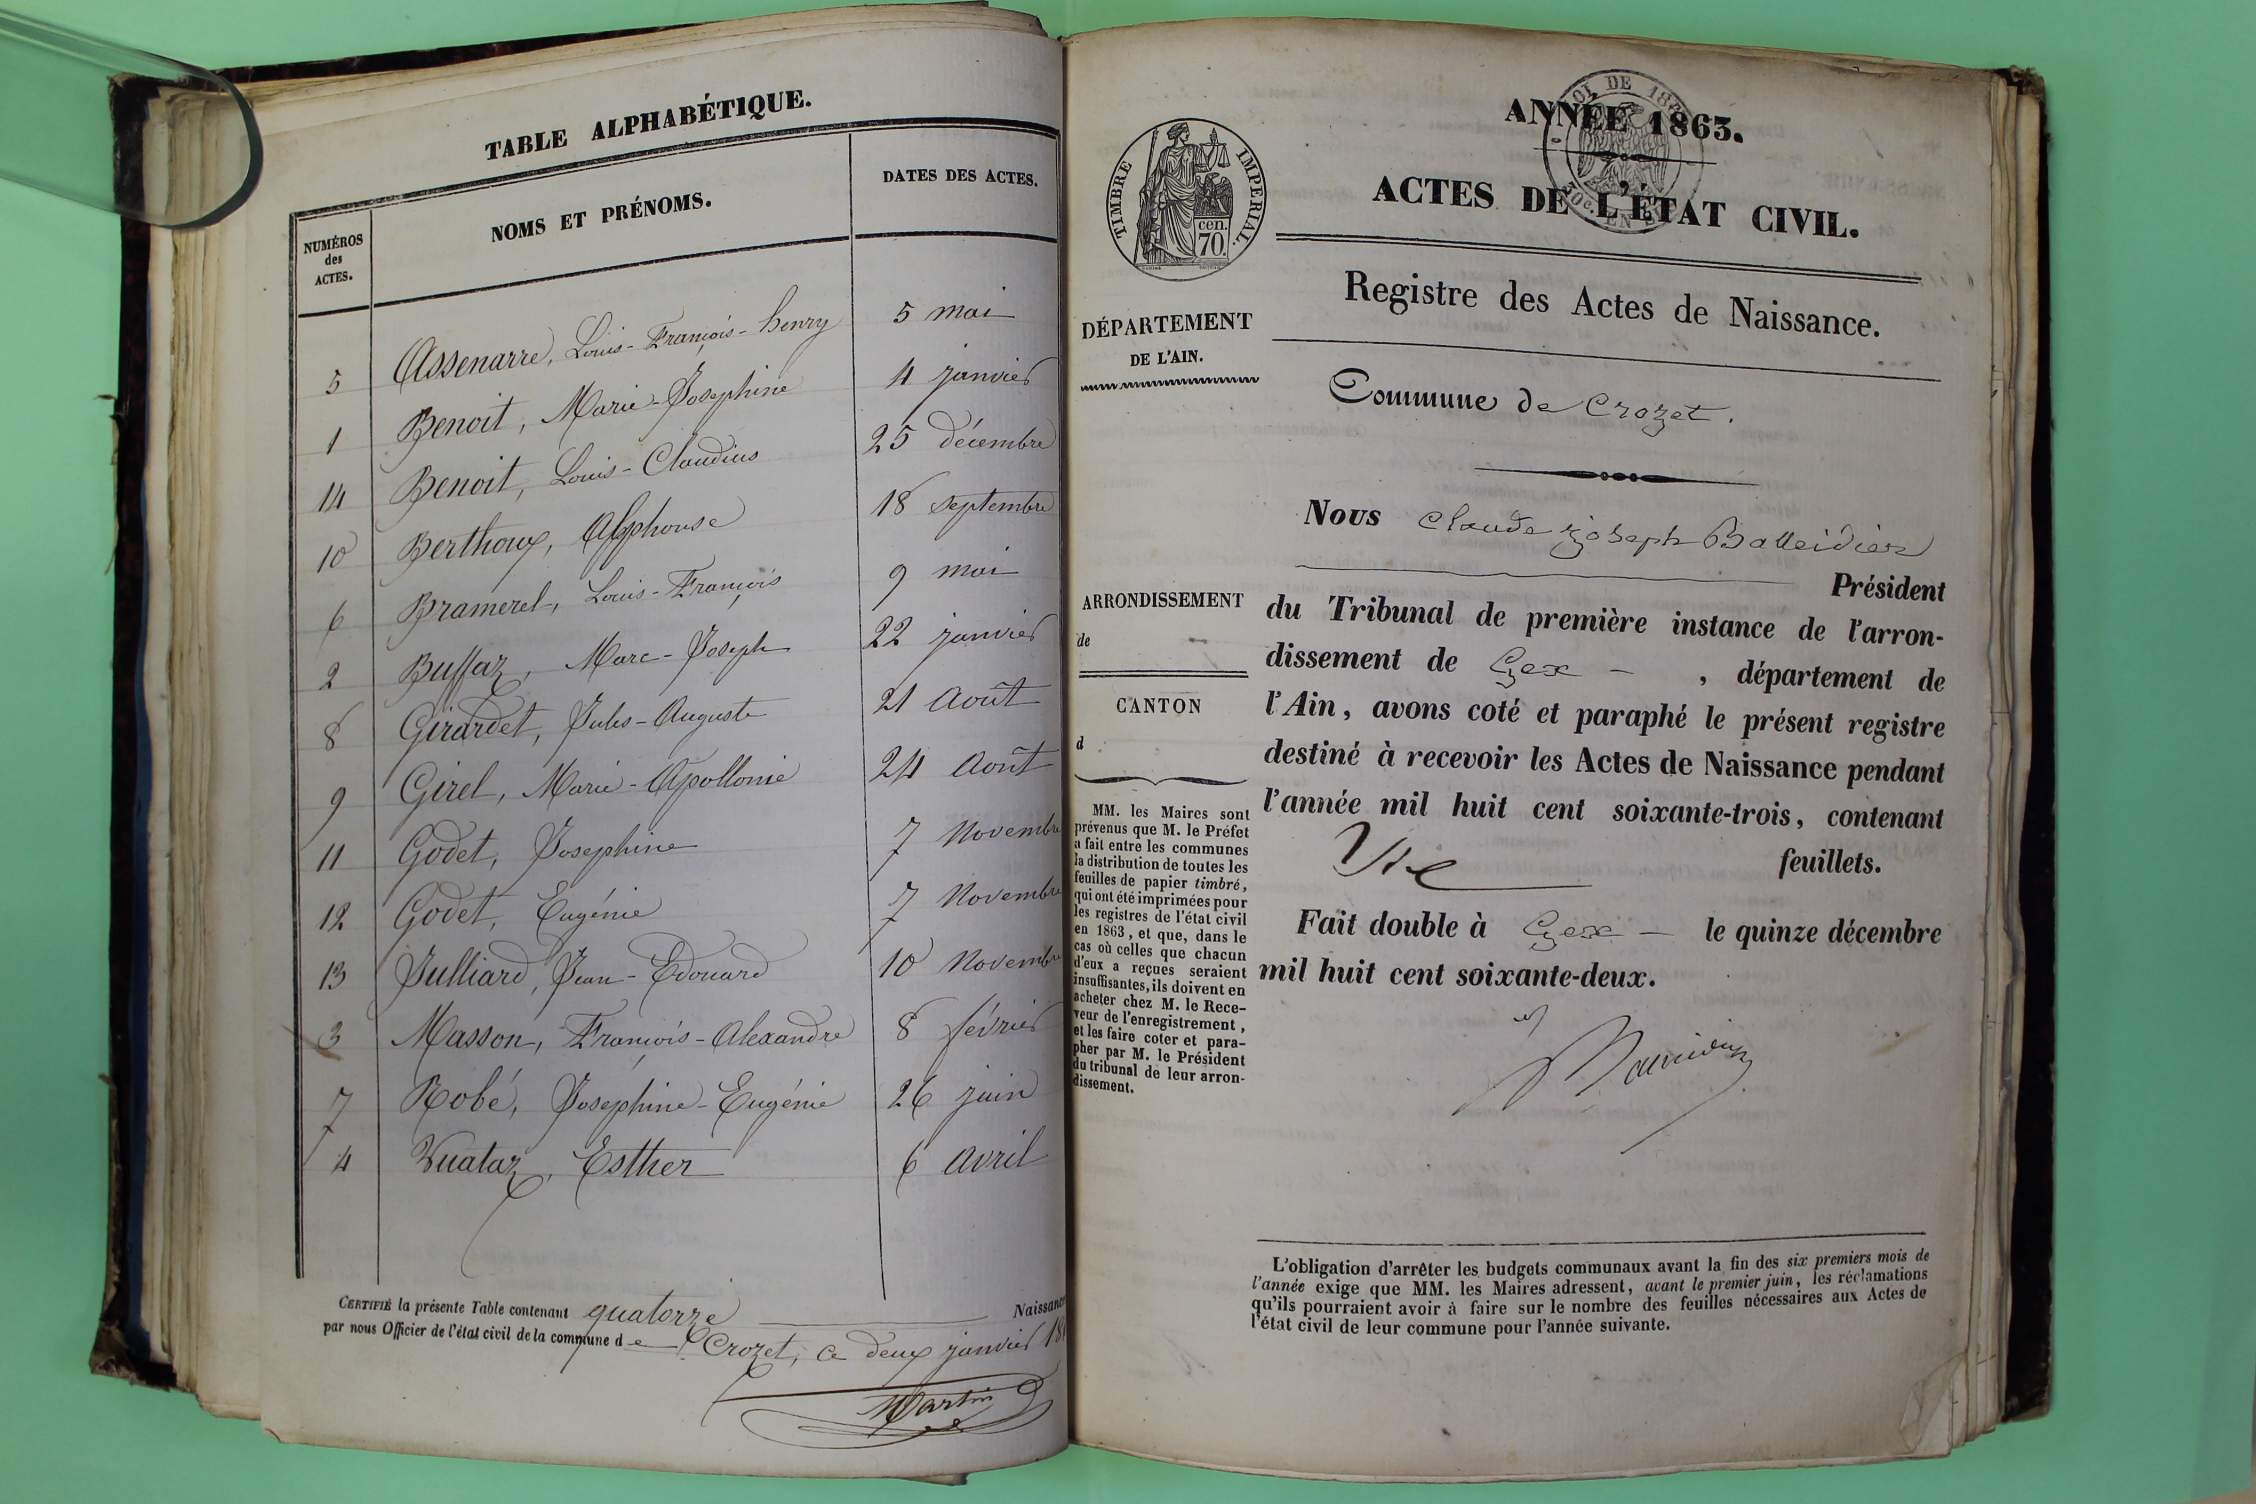 TABLE ALPHABÉTIQUE.
NUMÉROS des ACTES. NOMS ET PRÉNOMS. DATES DES ACTES.
5 Assenarre, Louis-François-henry 5 mai
1 Benoit, Marie-Joséphine 4 janvier
14 Benoit, Louis-Claudius 25 décembre
10 Berthoux, Alphonse 18 septembre
6 Bramerel, Louis-François 9 mai
2 Buffaz, Marc-Joseph 22 janvier
8 Girardet, Jules-Auguste 21 Août
9 Girel, Marie-Apollonie 24 Août
11 Godet, Joséphine 7 Novembre
12 Godet, Eugénie 7 Novembre
13 Julliard, Jean-Edouard 10 Novembre
3 Masson, François-Alexandre 8 février
7 Robé, Joséphine-Eugénie 26 juin
4 Vuataz, Esther 6 avril
CERTIFIÉ la présente Table contenant quatorze Naissances
par nous Officier de l'état civil de la commune de Crozet, ce deux janvier 18
Martin
TIMBRE IMPERIAL.
cen.
70.
DÉPARTEMENT
DE L'AIN.
ARRONDISSEMENT
de
CANTON
d
MM. les Maires sont
prévenus que M. le Préfet
a fait entre les communes
la distribution de toutes les
feuilles de papier timbré,
qui ont été imprimées pour
les registres de l'état civil
en 1863, et que, dans le
cas où celles que chacun
d'eux a reçues seraient
insuffisantes, ils doivent en
acheter chez M. le Rece-
veur de l'enregistrement,
et les faire coter et para-
pher par M. le Président
du tribunal de leur arron-
dissement.
ANNÉE 1863.
ACTES DE L'ÉTAT CIVIL.
Registre des Actes de Naissance.
Commune de Crozet.
Nous Claude Joseph Balleidier
Président
du Tribunal de première instance de l'arron-
dissement de Gex , département de
l'Ain, avons coté et paraphé le présent registre
destiné à recevoir les Actes de Naissance pendant
l'année mil huit cent soixante-trois, contenant
feuillets.
Fait double à Gex le quinze décembre
mil huit cent soixante-deux.
L'obligation d'arrêter les budgets communaux avant la fin des six premiers mois de
l'année exige que MM. les Maires adressent, avant le premier juin, les réclamations
qu'ils pourraient avoir à faire sur le nombre des feuilles nécessaires aux Actes de
l'état civil de leur commune pour l'année suivante.